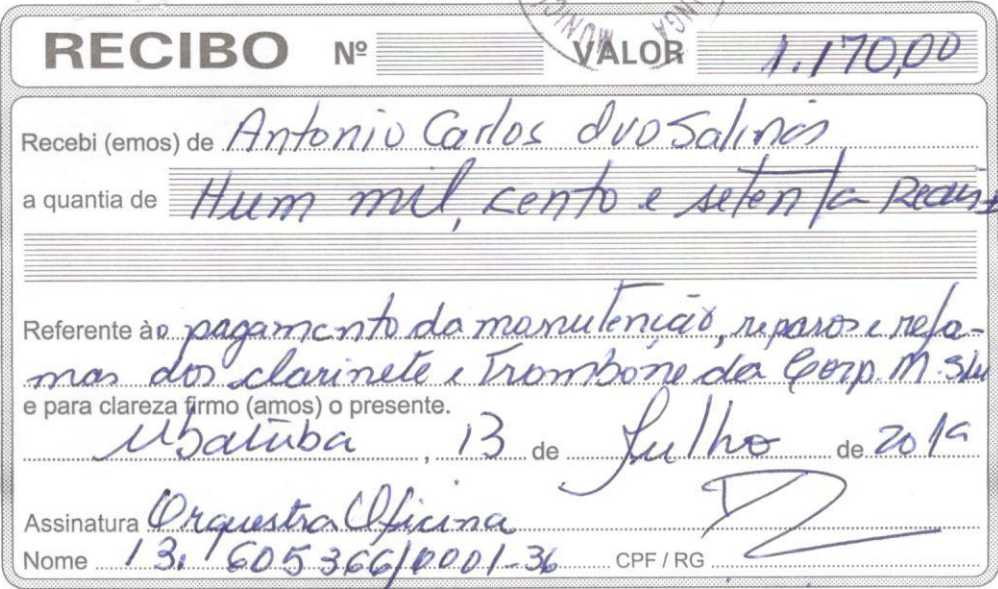 RECIBO Nº VALOR 1.170,00
Recebi (emos) de Antonio Carlos dvo Salinas
a quantia de Hum mil, cento e setenta Reais
Referente à o pagamento da manutenição, reparos e refo-
mas dos clarinete e Trombone da Corp. M.
e para clareza firmo (amos) o presente.
Ubatuba, 13 de Julho de 201
Assinatura Orquestra Oficina
Nome 13.605366/0001-36 CPF / RG